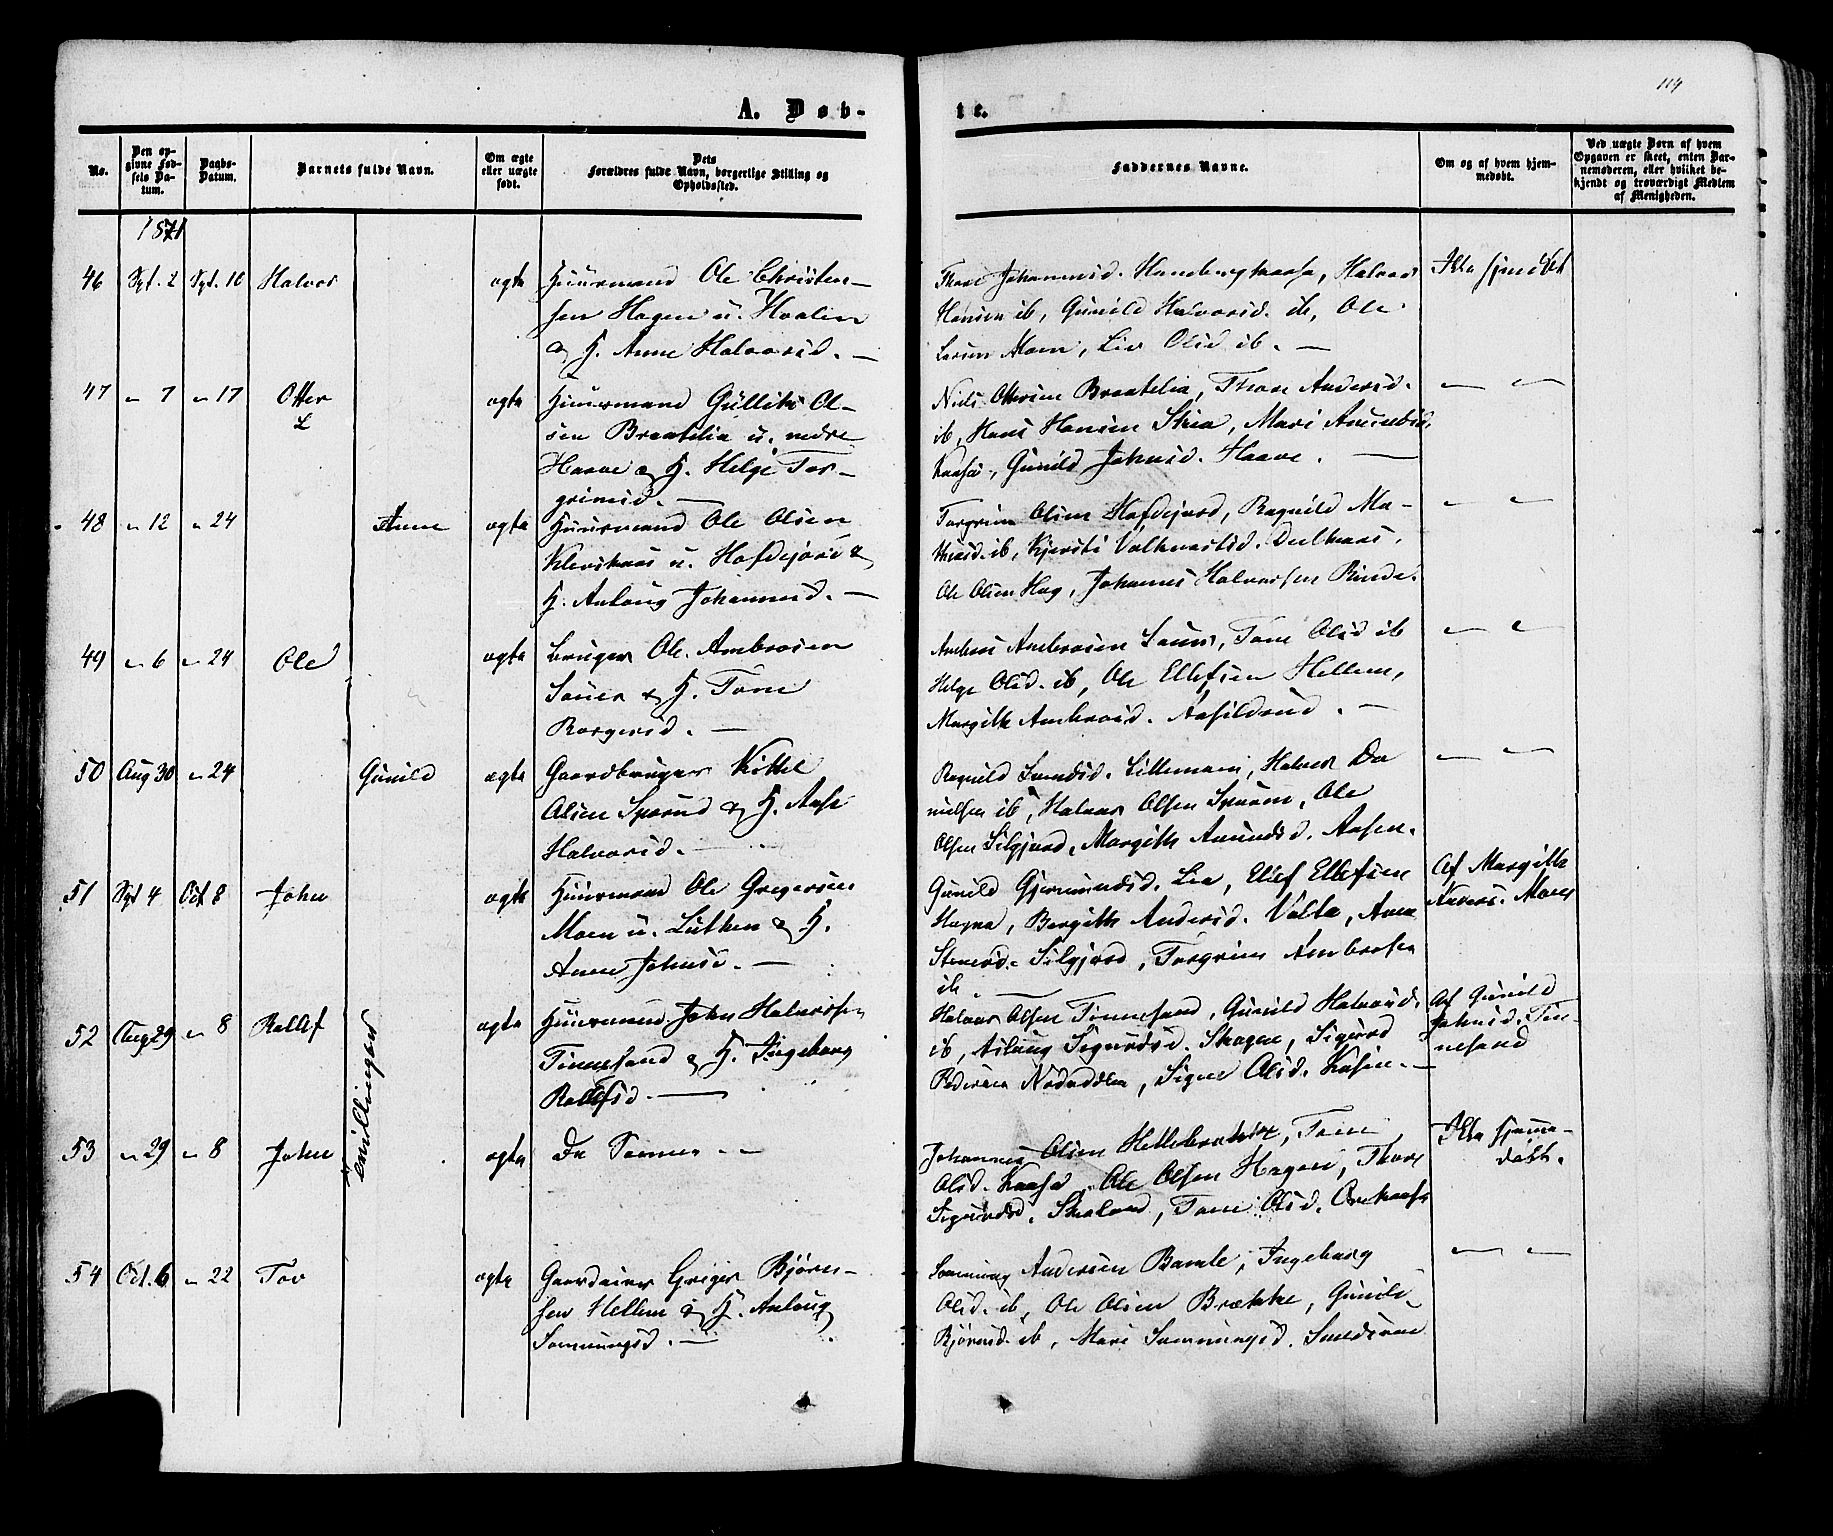 114
A. Døb-
te.
No.
Den op-
givne Fød-
sels Da-
tum.
Daabs-
Datum.
Barnets fulde Navn.
Om ægte
eller uægte
født.
Dets
Forældres fulde Navn, borgerlige Stilling og
Opholdssted.
Faddernes Navne.
Om og af hvem hjem-
medøbt.
Ved uægte Børn af hvem
Opgaven er skeet, enten Bar-
nemoderen, eller hvilket be-
kjendt og troværdigt Medlem
af Menigheden.
1871
46 Spt. 2 Spt. 10 Halvor ægte Huusmand Ole Christen-
sen Hagen u. Hvalen
& H. Anne Halvorsd. —
Thore Johannesd. Hambergkaasa, Halvor
Hansen ib, Gunild Halvorsd. ib, Ole
Larsen Moen, Liv Olsd ib. —
Ikke hjmdbt
47 " 7 " 17 Otter ægte Huusmand Gullik Ol-
sen Braatelia u. nedre
Haave & H. Helge Tor-
grimsd. —
Niels Ottersen Braatelia, Thore Andersd.
ib, Hans Hansen Skia, Mari Amundsd.
Kaasa, Gunild Johnsd. Haave. —
" "
48 " 12 " 24 Anne ægte Huusmand Ole Olsen
Kleivkaas u. Hofdejord &
H. Anlaug Johannesd. —
Torgrim Olsen Hofdejord, Ragnild Ma-
thisd. ib, Kjersti Valkvarsd. Dulkaas,
Ole Olsen Hag, Johannes Halvorsen Rinde.
" "
49 " 6 " 24 Ole ægte Bruger Ole Ambrosen
Sauer & H. Tone
Borgersd. —
Anders Ambrosen Sauer, Tone Olsd ib
Helge Olsd. ib, Ole Ellefsen Hellem,
Margith Ambrosd. Aasildrud. —
" "
50 Aug 30 " 24 Gunild ægte Gaardbruger Kittel
Olsen Sparud & H. Aase
Halvorsd. —
Ragnild Svendsd. Lillemoen, Halvor Da
nielsen ib, Halvor Olsen Sparem, Ole
Olsen Silgjord, Margith Amundsd. Aasen.
" "
51 Spt 4 Oct 8 John ægte Huusmand Ole Gregersen
Moen u. Luthen & H.
Anne Johnsd. —
Gunild Gjermundsd. Lia, Ellef Ellefsen
Hagna, Bergith Andersd. Valla, Anne
Steners. Silgjord, Torgrim Ambrosen
ib. —
Af Margith
Anders. Moen
52 Aug 29 " 8 Rollef ægte Huusmand John Halvorsen
Tinnesand & H. Ingeborg
Rollefsd. —
Halvor Olsen Tinnesand, Gunild Halvorsd.
ib, Aslaug Sigurdsd. Skogen, Sigurd
Pedersen Nordodden, Signe Olsd. Kasin. —
Af Gunild
Johnsd. Tin-
nesand
Tvillingfød
53 " 29 " 8 John ægte De Samme " —
Johannes Olsen Hellebrakka, Tone
Olsd. Kaasa, Ole Olsen Hagen, Thore
Sigurdsd. Skaland, Tone Olsd. Ørekaas
Ikke hjemme-
døbt.
54 Oct. 6 " 22 Tov ægte Gaardeier Greger Bjørn-
sen Hellem & H. Anlaug
Samungsd. —
Samung Andersen Bamle, Ingeborg
Olsd. ib, Ole Olsen Brække, Gunild
Bjørnsd. ib, Mari Samungsd. Sundsvae
" "